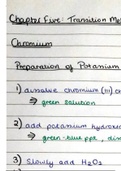 Chapter Five: Transition Me
Chromium
Preparation of Potassium
1) dissolve chromium (III) c
⇒ green solution
2) add potassium hydroxi
⇒ green-blue ppt, di
3) Slowly add H₂O₂